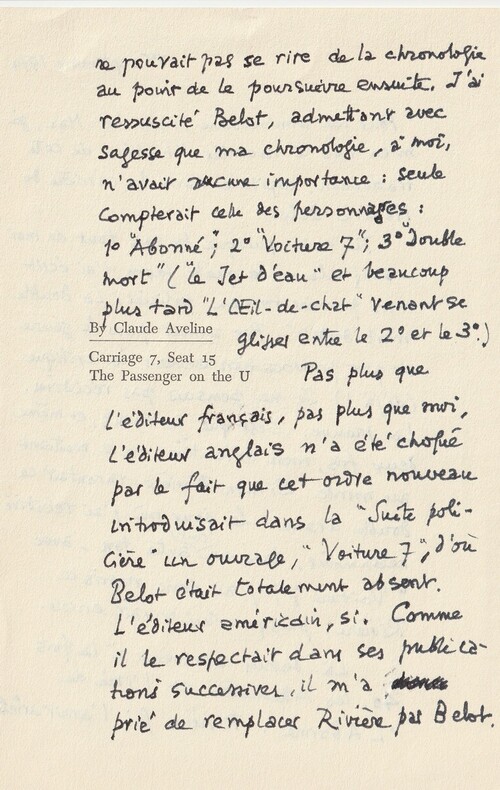 ne pouvait pas se rire de la chronologie
au point de le poursuivre ensuite. J'ai
ressuscité Belot, admettant avec
sagesse que ma chronologie, à moi,
n'avait aucune importance : seule
compterait celle des personnages :
1° "Abonné"; 2° "Voiture 7"; 3° "Double
mort" ("le Jet d'eau" et beaucoup
plus tard "L'Œil-de-chat" venant se
glisser entre le 2° et le 3°.)
By Claude Aveline
Carriage 7, Seat 15
The Passenger on the U
Pas plus que
l'éditeur français, pas plus que moi,
l'éditeur anglais n'a été choqué
par le fait que cet ordre nouveau
introduisait dans la "Suite poli-
cière" un ouvrage, "Voiture 7", d'où
Belot était totalement absent.
L'éditeur américain, si. Comme
il le respectait dans ses publica-
tions successives, il m'a
prié de remplacer Rivière par Belot.